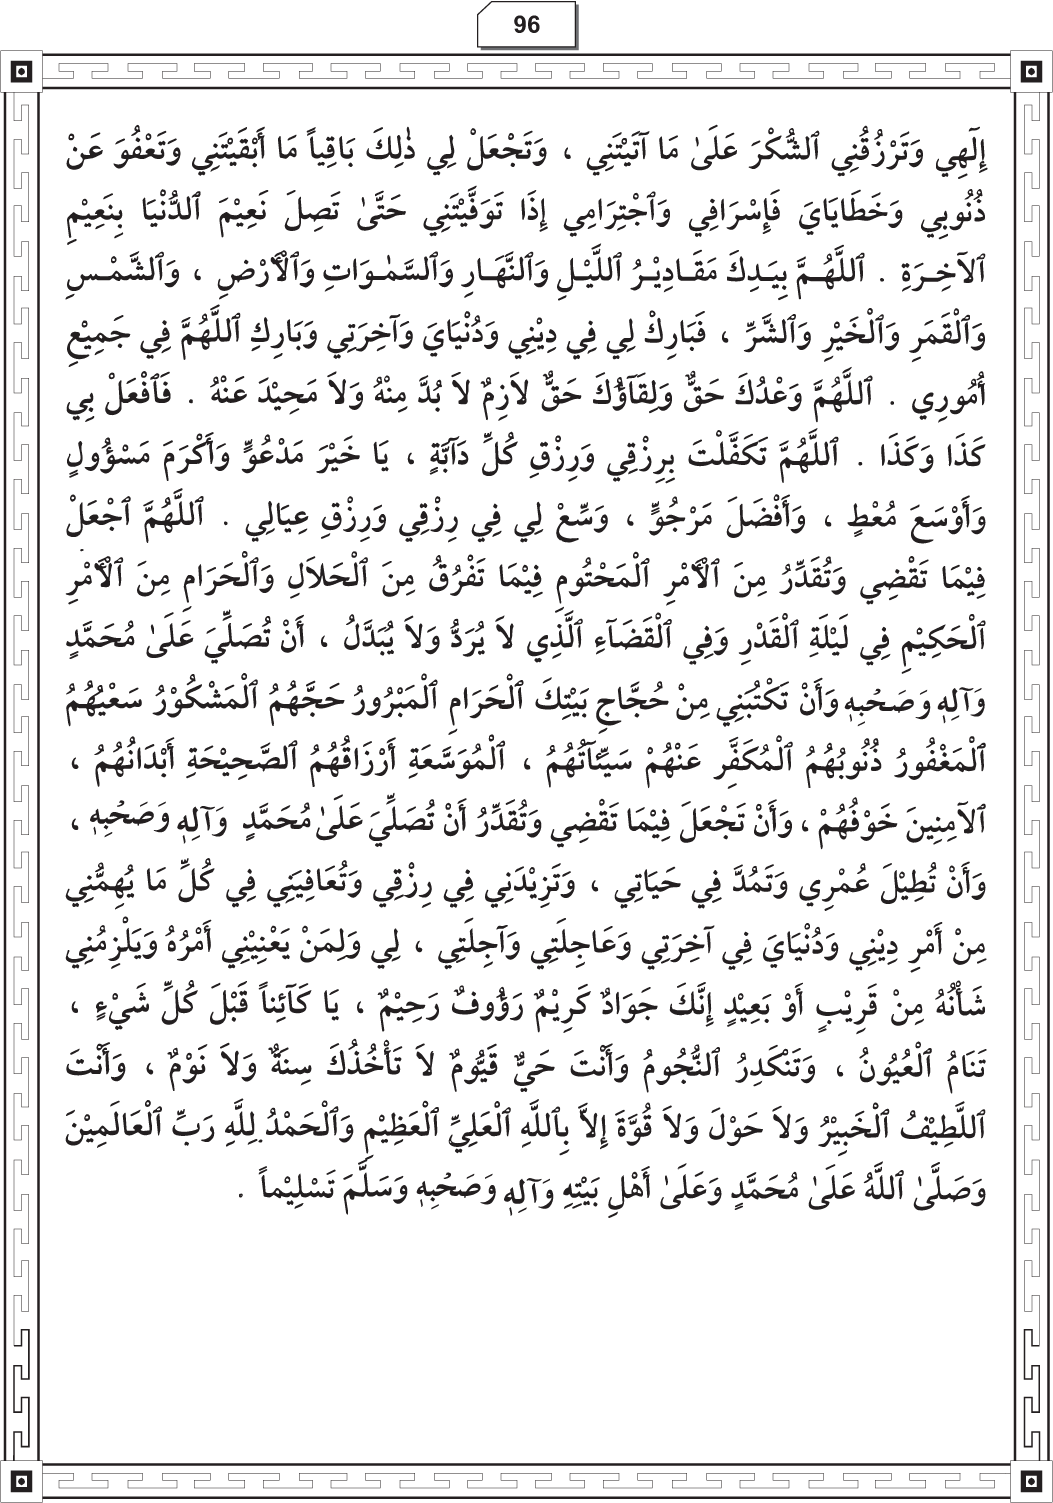 96
إِلٰٓهِي وَتَرْزُقُنِي ٱلشُّكْرَ عَلَىٰ مَا آتَيْتَنِي ، وَتَجْعَلْ لِي ذٰلِكَ بَاقِياً مَا أَبْقَيْتَنِي وَتَعْفُوَ عَنْ
ذُنُوبِي وَخَطَايَايَ فَإِسْرَافِي وَٱجْتِرَامِي إِذَا تَوَفَّيْتَنِي حَتَّىٰ تَصِلَ نَعِيْمَ ٱلدُّنْيَا بِنَعِيْمِ
ٱلآخِرَةِ . ٱللَّهُمَّ بِيَدِكَ مَقَادِيْرُ ٱللَّيْلِ وَٱلنَّهَارِ وَٱلسَّمٰوَاتِ وَٱلْأَرْضِ ، وَٱلشَّمْسِ
وَٱلْقَمَرِ وَٱلْخَيْرِ وَٱلشَّرِّ ، فَبَارِكْ لِي فِي دِيْنِي وَدُنْيَايَ وَآخِرَتِي وَبَارِكِ ٱللَّهُمَّ فِي جَمِيْعِ
أُمُورِي . ٱللَّهُمَّ وَعْدُكَ حَقٌّ وَلِقَآؤُكَ حَقٌّ لاَزِمٌ لاَ بُدَّ مِنْهُ وَلاَ مَحِيْدَ عَنْهُ . فَٱفْعَلْ بِي
كَذَا وَكَذَا . ٱللَّهُمَّ تَكَفَّلْتَ بِرِزْقِي وَرِزْقِ كُلِّ دَآبَّةٍ ، يَا خَيْرَ مَدْعُوٍّ وَأَكْرَمَ مَسْؤُولٍ
وَأَوْسَعَ مُعْطٍ ، وَأَفْضَلَ مَرْجُوٍّ ، وَسِّعْ لِي فِي رِزْقِي وَرِزْقِ عِيَالِي . ٱللَّهُمَّ ٱجْعَلْ
فِيْمَا تَقْضِي وَتُقَدِّرُ مِنَ ٱلْأَمْرِ ٱلْمَحْتُومِ فِيْمَا تَفْرُقُ مِنَ ٱلْحَلاَلِ وَٱلْحَرَامِ مِنَ ٱلْأَمْرِ
ٱلْحَكِيْمِ فِي لَيْلَةِ ٱلْقَدْرِ وَفِي ٱلْقَضَآءِ ٱلَّذِي لاَ يُرَدُّ وَلاَ يُبَدَّلُ ، أَنْ تُصَلِّيَ عَلَىٰ مُحَمَّدٍ
وَآلِهِ وَصَحْبِهِ وَأَنْ تَكْتُبَنِي مِنْ حُجَّاجِ بَيْتِكَ ٱلْحَرَامِ ٱلْمَبْرُورُ حَجَّهُمُ ٱلْمَشْكُوْرُ سَعْيُهُمُ
ٱلْمَغْفُورُ ذُنُوبُهُمُ ٱلْمُكَفَّرِ عَنْهُمْ سَيِّئَآتُهُمُ ، ٱلْمُوَسَّعَةِ أَرْزَاقُهُمُ ٱلصَّحِيْحَةِ أَبْدَانُهُمُ ،
ٱلآمِنِينَ خَوْفُهُمْ ، وَأَنْ تَجْعَلَ فِيْمَا تَقْضِي وَتُقَدِّرُ أَنْ تُصَلِّيَ عَلَىٰ مُحَمَّدٍ وَآلِهِ وَصَحْبِهِ ،
وَأَنْ تُطِيْلَ عُمْرِي وَتَمُدَّ فِي حَيَاتِي ، وَتَزِيْدَنِي فِي رِزْقِي وَتُعَافِيَنِي فِي كُلِّ مَا يُهِمُّنِي
مِنْ أَمْرِ دِيْنِي وَدُنْيَايَ فِي آخِرَتِي وَعَاجِلَتِي وَآجِلَتِي ، لِي وَلِمَنْ يَعْنِيْنِي أَمْرُهُ وَيَلْزِمُنِي
شَأْنُهُ مِنْ قَرِيْبٍ أَوْ بَعِيْدٍ إِنَّكَ جَوَادٌ كَرِيْمٌ رَؤُوفٌ رَحِيْمٌ ، يَا كَآئِناً قَبْلَ كُلِّ شَيْءٍ ،
تَنَامُ ٱلْعُيُونُ ، وَتَنْكَدِرُ ٱلنُّجُومُ وَأَنْتَ حَيٌّ قَيُّومٌ لاَ تَأْخُذُكَ سِنَةٌ وَلاَ نَوْمٌ ، وَأَنْتَ
ٱللَّطِيْفُ ٱلْخَبِيْرُ وَلاَ حَوْلَ وَلاَ قُوَّةَ إِلاَّ بِٱللَّهِ ٱلْعَلِيِّ ٱلْعَظِيْمِ وَٱلْحَمْدُ لِلَّهِ رَبِّ ٱلْعَالَمِيْنَ
وَصَلَّىٰ ٱللَّهُ عَلَىٰ مُحَمَّدٍ وَعَلَىٰ أَهْلِ بَيْتِهِ وَآلِهِ وَصَحْبِهِ وَسَلَّمَ تَسْلِيْماً .